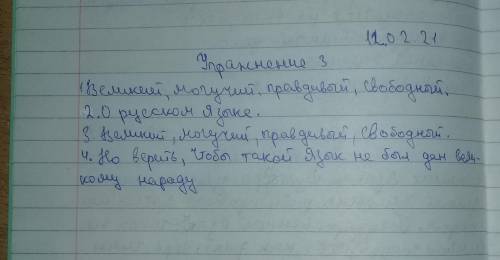 12.02.21
Упражнение 3
1. Великий, могучий, правдивый, свободный.
2. О русском языке.
3. Великий, могучий, правдивый, свободный.
4. Но верить, чтобы такой язык не был дан вели-
кому нараду